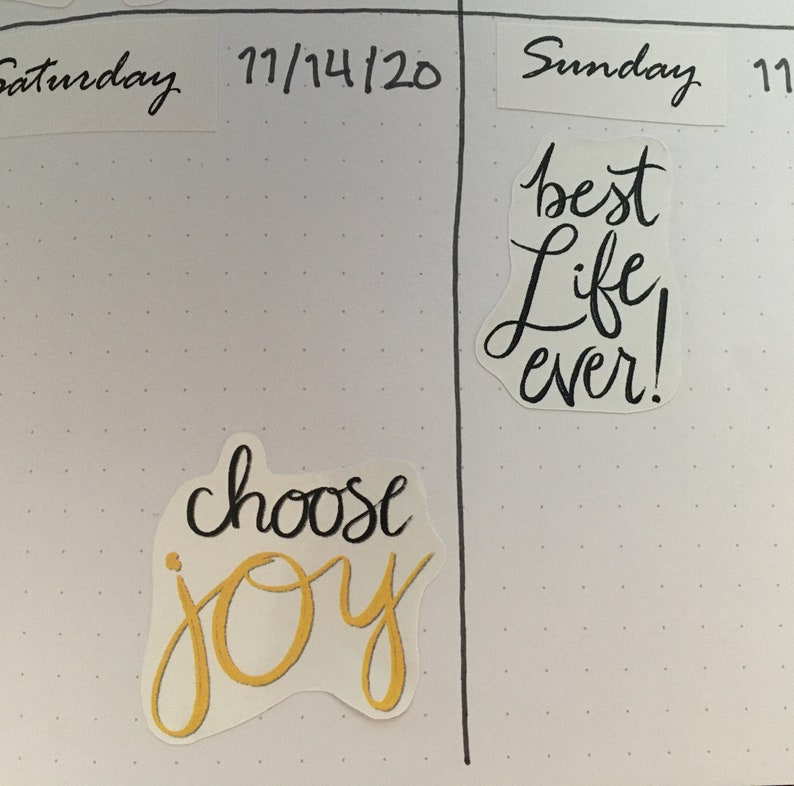 Saturday 11/14/20
choose
joy
Sunday 11
best
Life
ever!